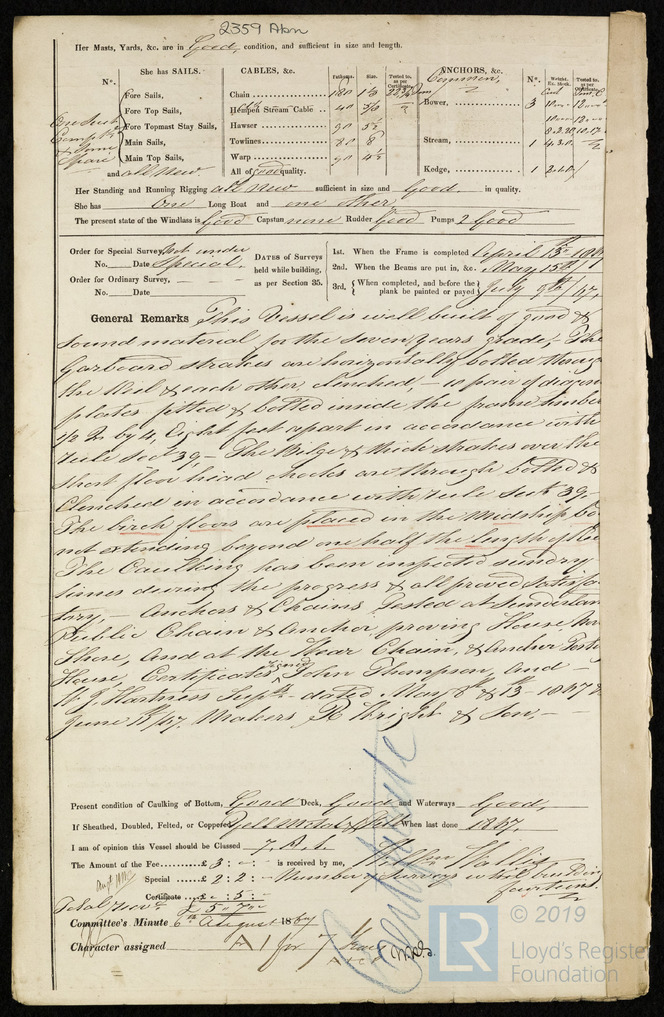 2359 Abn
Her Masts, Yards, &c. are in Good, condition, and sufficient in size and length.
She has SAILS. CABLES, &c. Fathoms. Size. Tested to, as per Certificate ANCHORS, &c. Nº. Weight. Ex. Stock. Tested to, as per Certificate
Nº.
Fore Sails,
Fore Top Sails,
Fore Topmast Stay Sails,
Main Sails,
Main Top Sails,
and all new
One Suit
Compte
& Some
Spare
Chain 180
Hempen Stream Cable 40
Hawser 90 5½
Towlines 80 8
Warp 90 4½
All of good quality.
Common
Bower, 3
Stream, 1
Kedge, 1
Her Standing and Running Rigging all new sufficient in size and Good in quality.
She has one Long Boat and one other
The present state of the Windlass is Good Capstan none Rudder Good Pumps 2 Good
Order for Special Survey, not under
No. Date Special.
Order for Ordinary Survey,
No. Date
DATES of Surveys held while building, as per Section 35.
1st. When the Frame is completed April 13th 1867
2nd. When the Beams are put in, &c. May 15th /67
3rd. When completed, and before the plank be painted or payed July 9th /67,
General Remarks This Vessel is well built of good &
sound material for the seven years grade, The
Garboard strakes are horizontally bolted through
the Keel & each other, clenched, – 10 pair of diagon
plates fitted & bolted inside the frame timber
by 4, Eight feet apart in accordance with
rule Sect 39, – The Bilge & thick strakes over the
short floor head chocks are through bolted &
Clenched in accordance with rule Sect 39 –
The birch floors are placed in the Midship bo
not extending beyond one half the length of Ke
The Caulking has been inspected sundry
times during the progress & all proved satisfac
tory, – Anchors & Chains Tested at Sunderlan
Public Chain & Anchor proving House Nor
Shore, and at the Wear Chain, & Anchor Testi
House, Certificates signed John Thompson, and –
W. J. Hartness Supts – dated May 8th & 13th 1867 &
June 18th/67, Makers, R Wright & Son, –
Present condition of Caulking of Bottom, Good Deck, Good and Waterways Good,
If Sheathed, Doubled, Felted, or Coppered Yell Metal & Felt When last done 1867,
I am of opinion this Vessel should be Classed 7. A.1.
The Amount of the Fee £ 3 : – : – is received by me, William Wallis
Special £ 2 : 2 : – Number of Surveys whilst building
Certificate £ – : 5 : – fourteen.
Total £ 5 . 7 . –
Committee's Minute 6th August 1867
Character assigned A 1 for 7 Years
W.P.S.
© 2019
LR
Lloyd's Register
Foundation